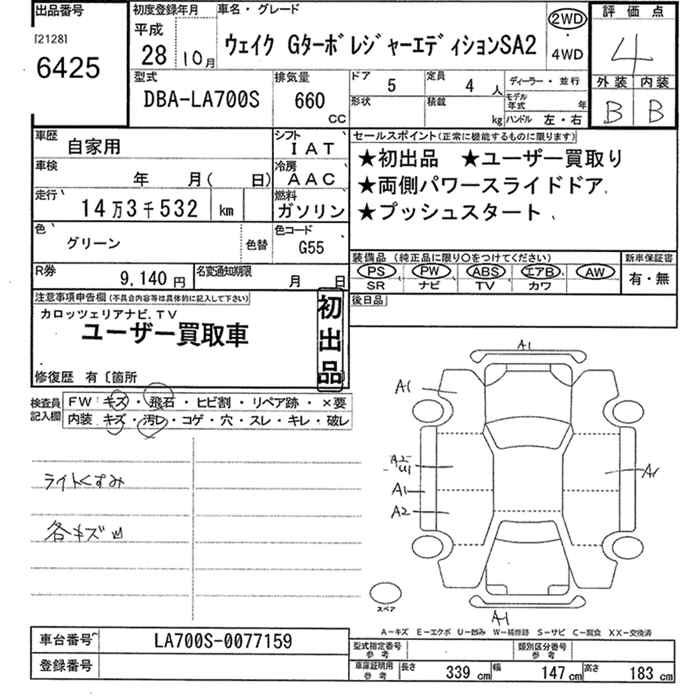 出品番号
[2128]
6425
初度登録年月
平成
28 10月
車名・グレード
ウェイク GターボレジャーエディションSA2
2WD
・
4WD
評価点
4
外装 内装
B B
型式
DBA-LA700S
排気量
660
CC
ドア 5
定員 4 人
形状
積載 kg
ディーラー・並行
モデル年式 年
ハンドル 左・右
車歴 自家用
車検 年 月( 日)
走行 14万3千532 km
色 グリーン 色替
R券 9,140 円
名変通知期限 月 日
シフト IAT
冷房 AAC
燃料 ガソリン
色コード G55
セールスポイント(正常に機能するものに限ります)
★初出品 ★ユーザー買取り
★両側パワースライドドア
★プッシュスタート
装備品 (純正品に限り○をつけてください)
PS PW ABS エアB AW
SR ナビ TV カワ
新車保証書
有・無
後日品
注意事項申告欄(不具合内容等は具体的に記入して下さい)
カロッツェリアナビ.TV
ユーザー買取車
初出品
修復歴 有〔箇所
検査員記入欄
FW キズ・飛石・ヒビ割・リペア跡・×要
内装 キズ・汚レ・コゲ・穴・スレ・キレ・破レ
ライトくすみ
各キズ凹
A1
A1
A2
A1
A2
A1
A1
スペア
A－キズ E－エクボ U－凹み W－補修跡 S－サビ C－腐食 XX－交換済
車台番号 LA700S-0077159
登録番号
型式指定番号 参考
類別区分番号 参考
車庫証明用 参考
長さ 339 cm 幅 147 cm 高さ 183 cm